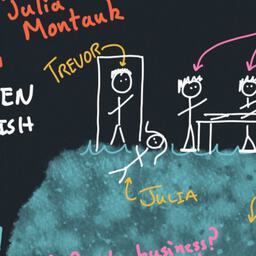 Julia
Montauk
TREVOR
EN
ISH
JULIA
business?